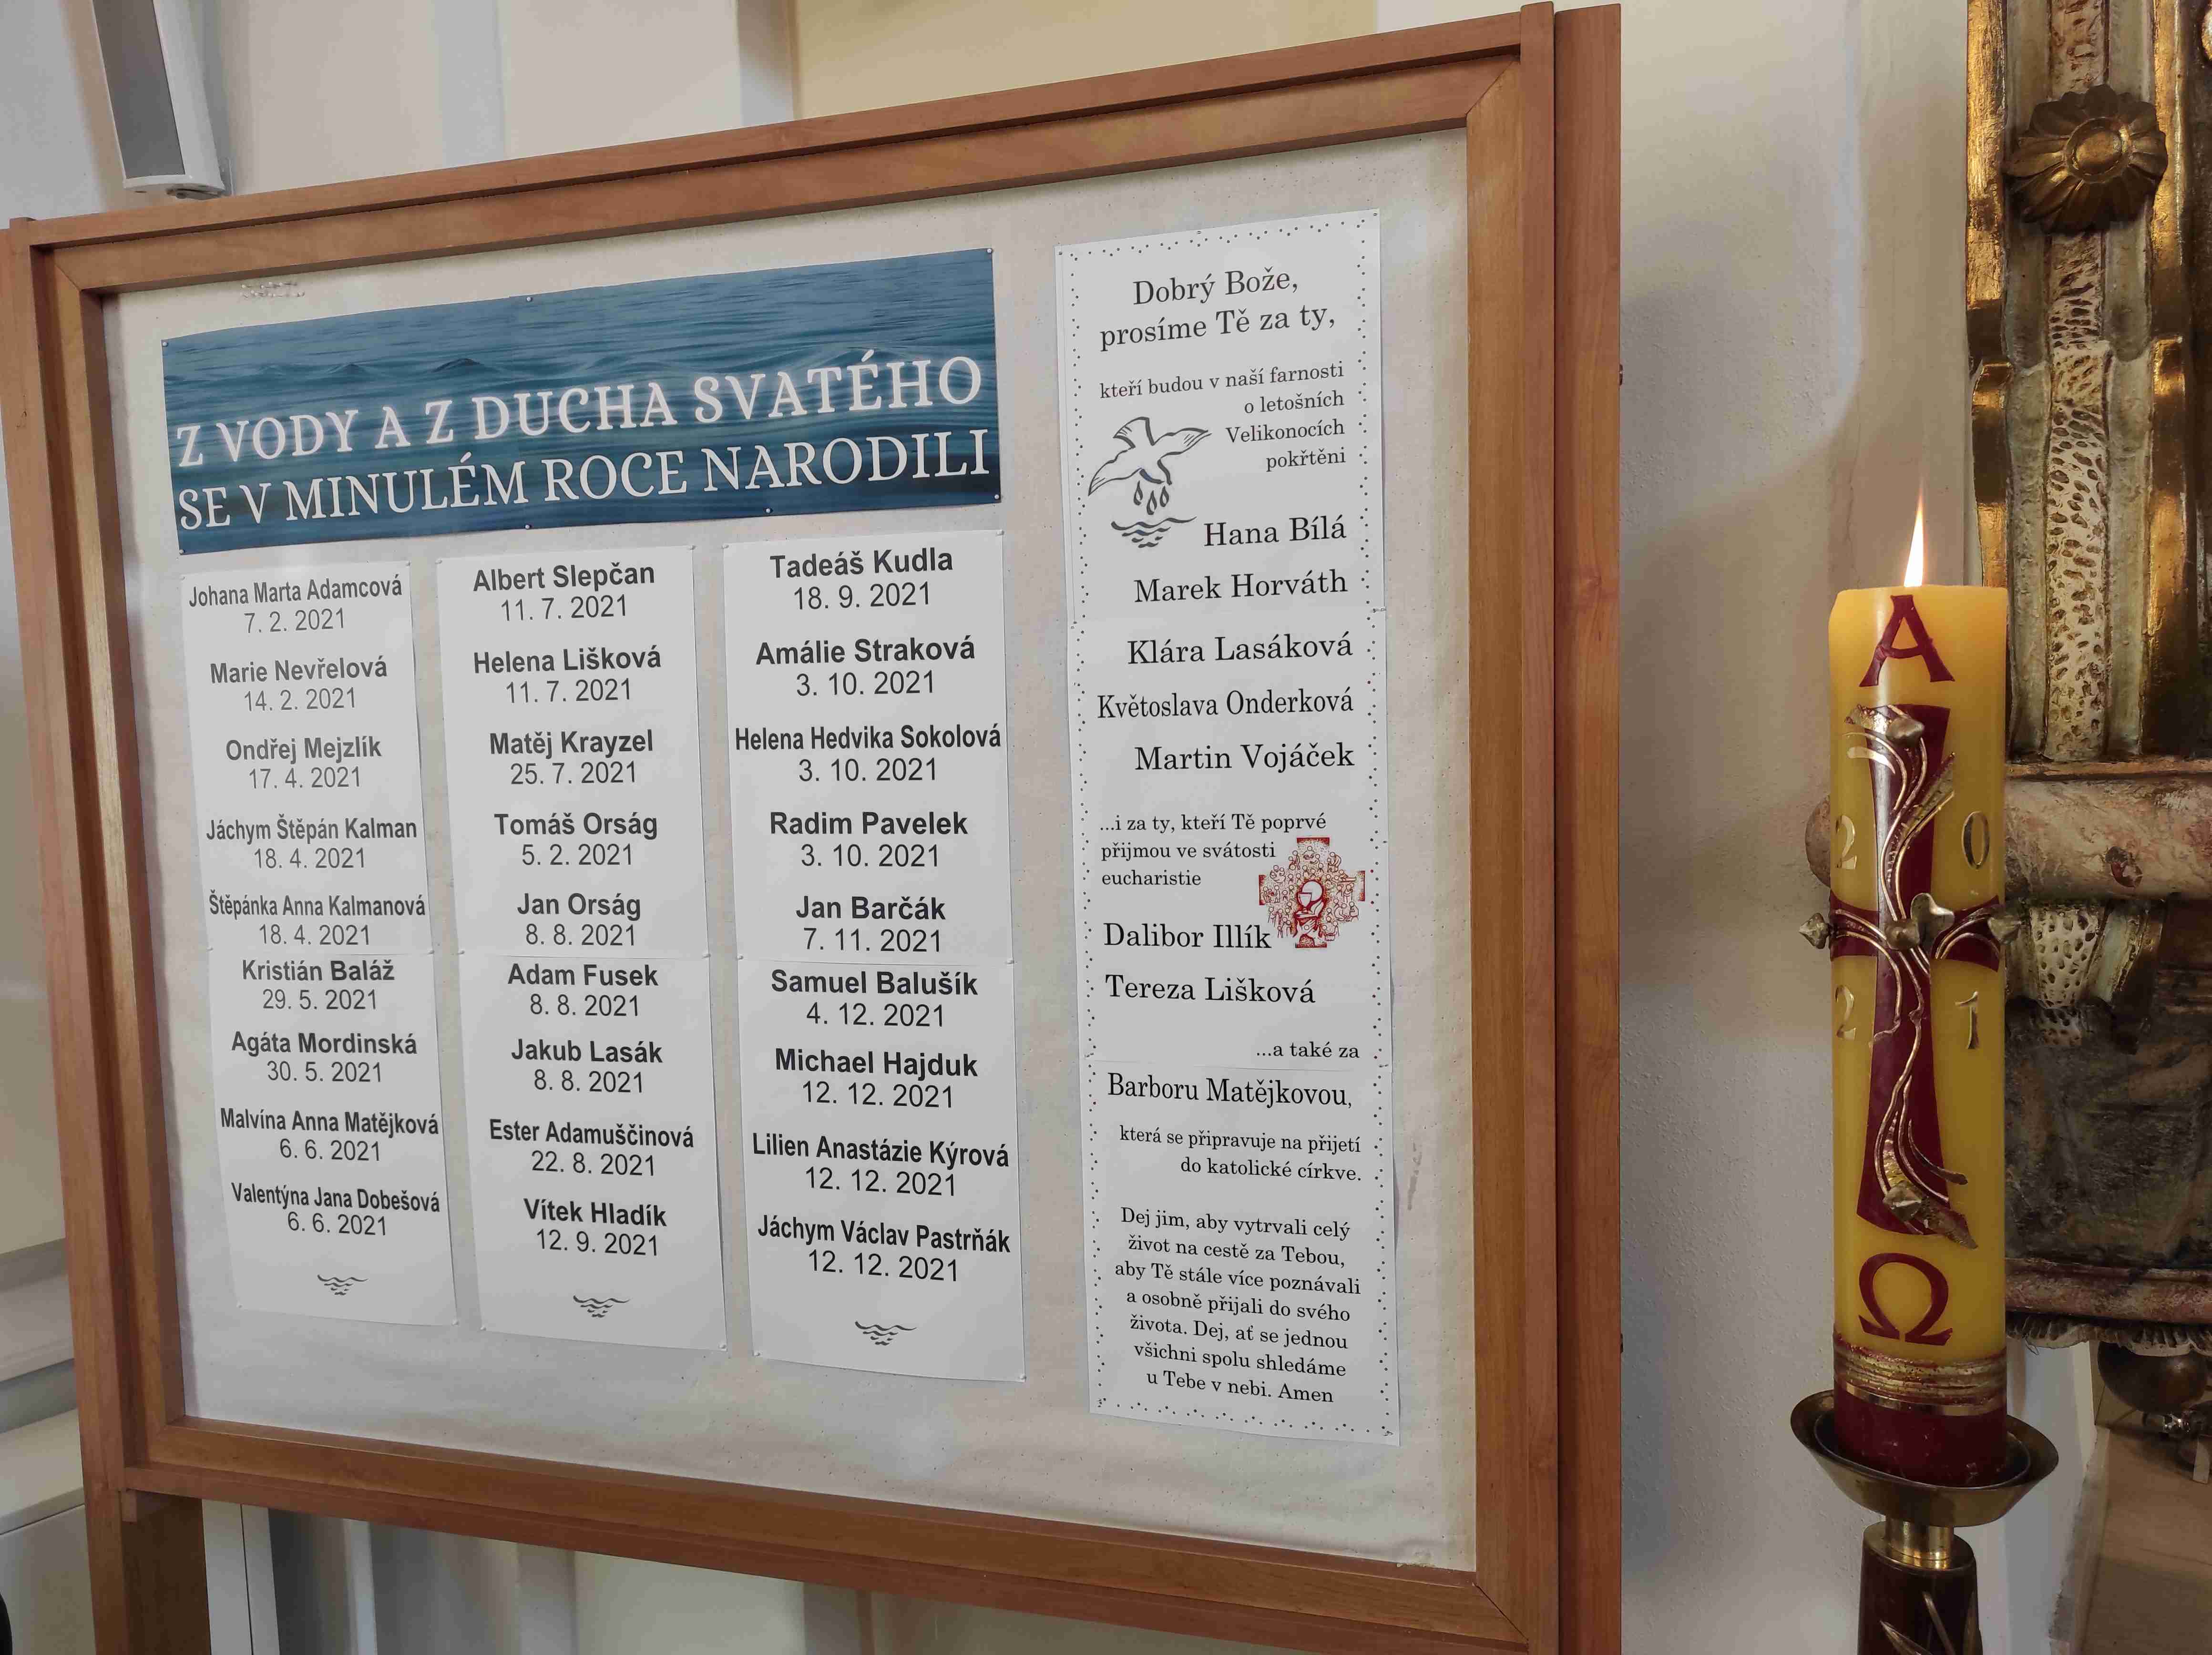 Z VODY A Z DUCHA SVATÉHO
SE V MINULÉM ROCE NARODILI
Johana Marta Adamcová
7. 2. 2021
Marie Nevřelová
14. 2. 2021
Ondřej Mejzlík
17. 4. 2021
Jáchym Štěpán Kalman
18. 4. 2021
Štěpánka Anna Kalmanová
18. 4. 2021
Kristián Baláž
29. 5. 2021
Agáta Mordinská
30. 5. 2021
Malvína Anna Matějková
6. 6. 2021
Valentýna Jana Dobešová
6. 6. 2021
Albert Slepčan
11. 7. 2021
Helena Lišková
11. 7. 2021
Matěj Krayzel
25. 7. 2021
Tomáš Orság
5. 2. 2021
Jan Orság
8. 8. 2021
Adam Fusek
8. 8. 2021
Jakub Lasák
8. 8. 2021
Ester Adamuščinová
22. 8. 2021
Vítek Hladík
12. 9. 2021
Tadeáš Kudla
18. 9. 2021
Amálie Straková
3. 10. 2021
Helena Hedvika Sokolová
3. 10. 2021
Radim Pavelek
3. 10. 2021
Jan Barčák
7. 11. 2021
Samuel Balušík
4. 12. 2021
Michael Hajduk
12. 12. 2021
Lilien Anastázie Kýrová
12. 12. 2021
Jáchym Václav Pastrňák
12. 12. 2021
Dobrý Bože,
prosíme Tě za ty,
kteří budou v naší farnosti
o letošních
Velikonocích
pokřtěni
Hana Bílá
Marek Horváth
Klára Lasáková
Květoslava Onderková
Martin Vojáček
...i za ty, kteří Tě poprvé
přijmou ve svátosti
eucharistie
Dalibor Illík
Tereza Lišková
...a také za
Barboru Matějkovou,
která se připravuje na přijetí
do katolické církve.
Dej jim, aby vytrvali celý
život na cestě za Tebou,
aby Tě stále více poznávali
a osobně přijali do svého
života. Dej, ať se jednou
všichni spolu shledáme
u Tebe v nebi. Amen
Α
2 0
2 1
Ω